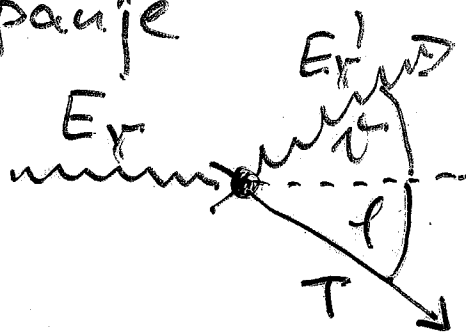 panje
Eγ'
Eγ
ϑ
φ
T